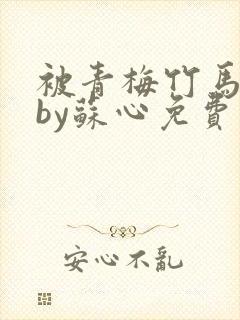 被青梅竹馬
by蘇心免費
安心不亂